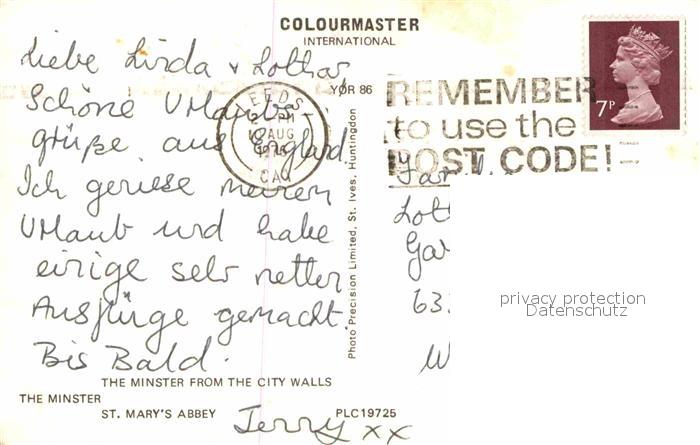 COLOURMASTER
INTERNATIONAL
Liebe Linda + Lothar
Schöne Urlaubs-
grüße aus England.
Ich geniese meinen
Urlaub und habe
einige sehr netten
Ausflüge gemacht.
Bis Bald.
Jerry xx
YOR 86
LEEDS
AUG
REMEMBER
to use the
POST CODE!
7P
Photo Precision Limited, St. Ives, Huntingdon
Lot
Gar
63
W
privacy protection
Datenschutz
THE MINSTER FROM THE CITY WALLS
THE MINSTER
ST. MARY'S ABBEY
PLC19725